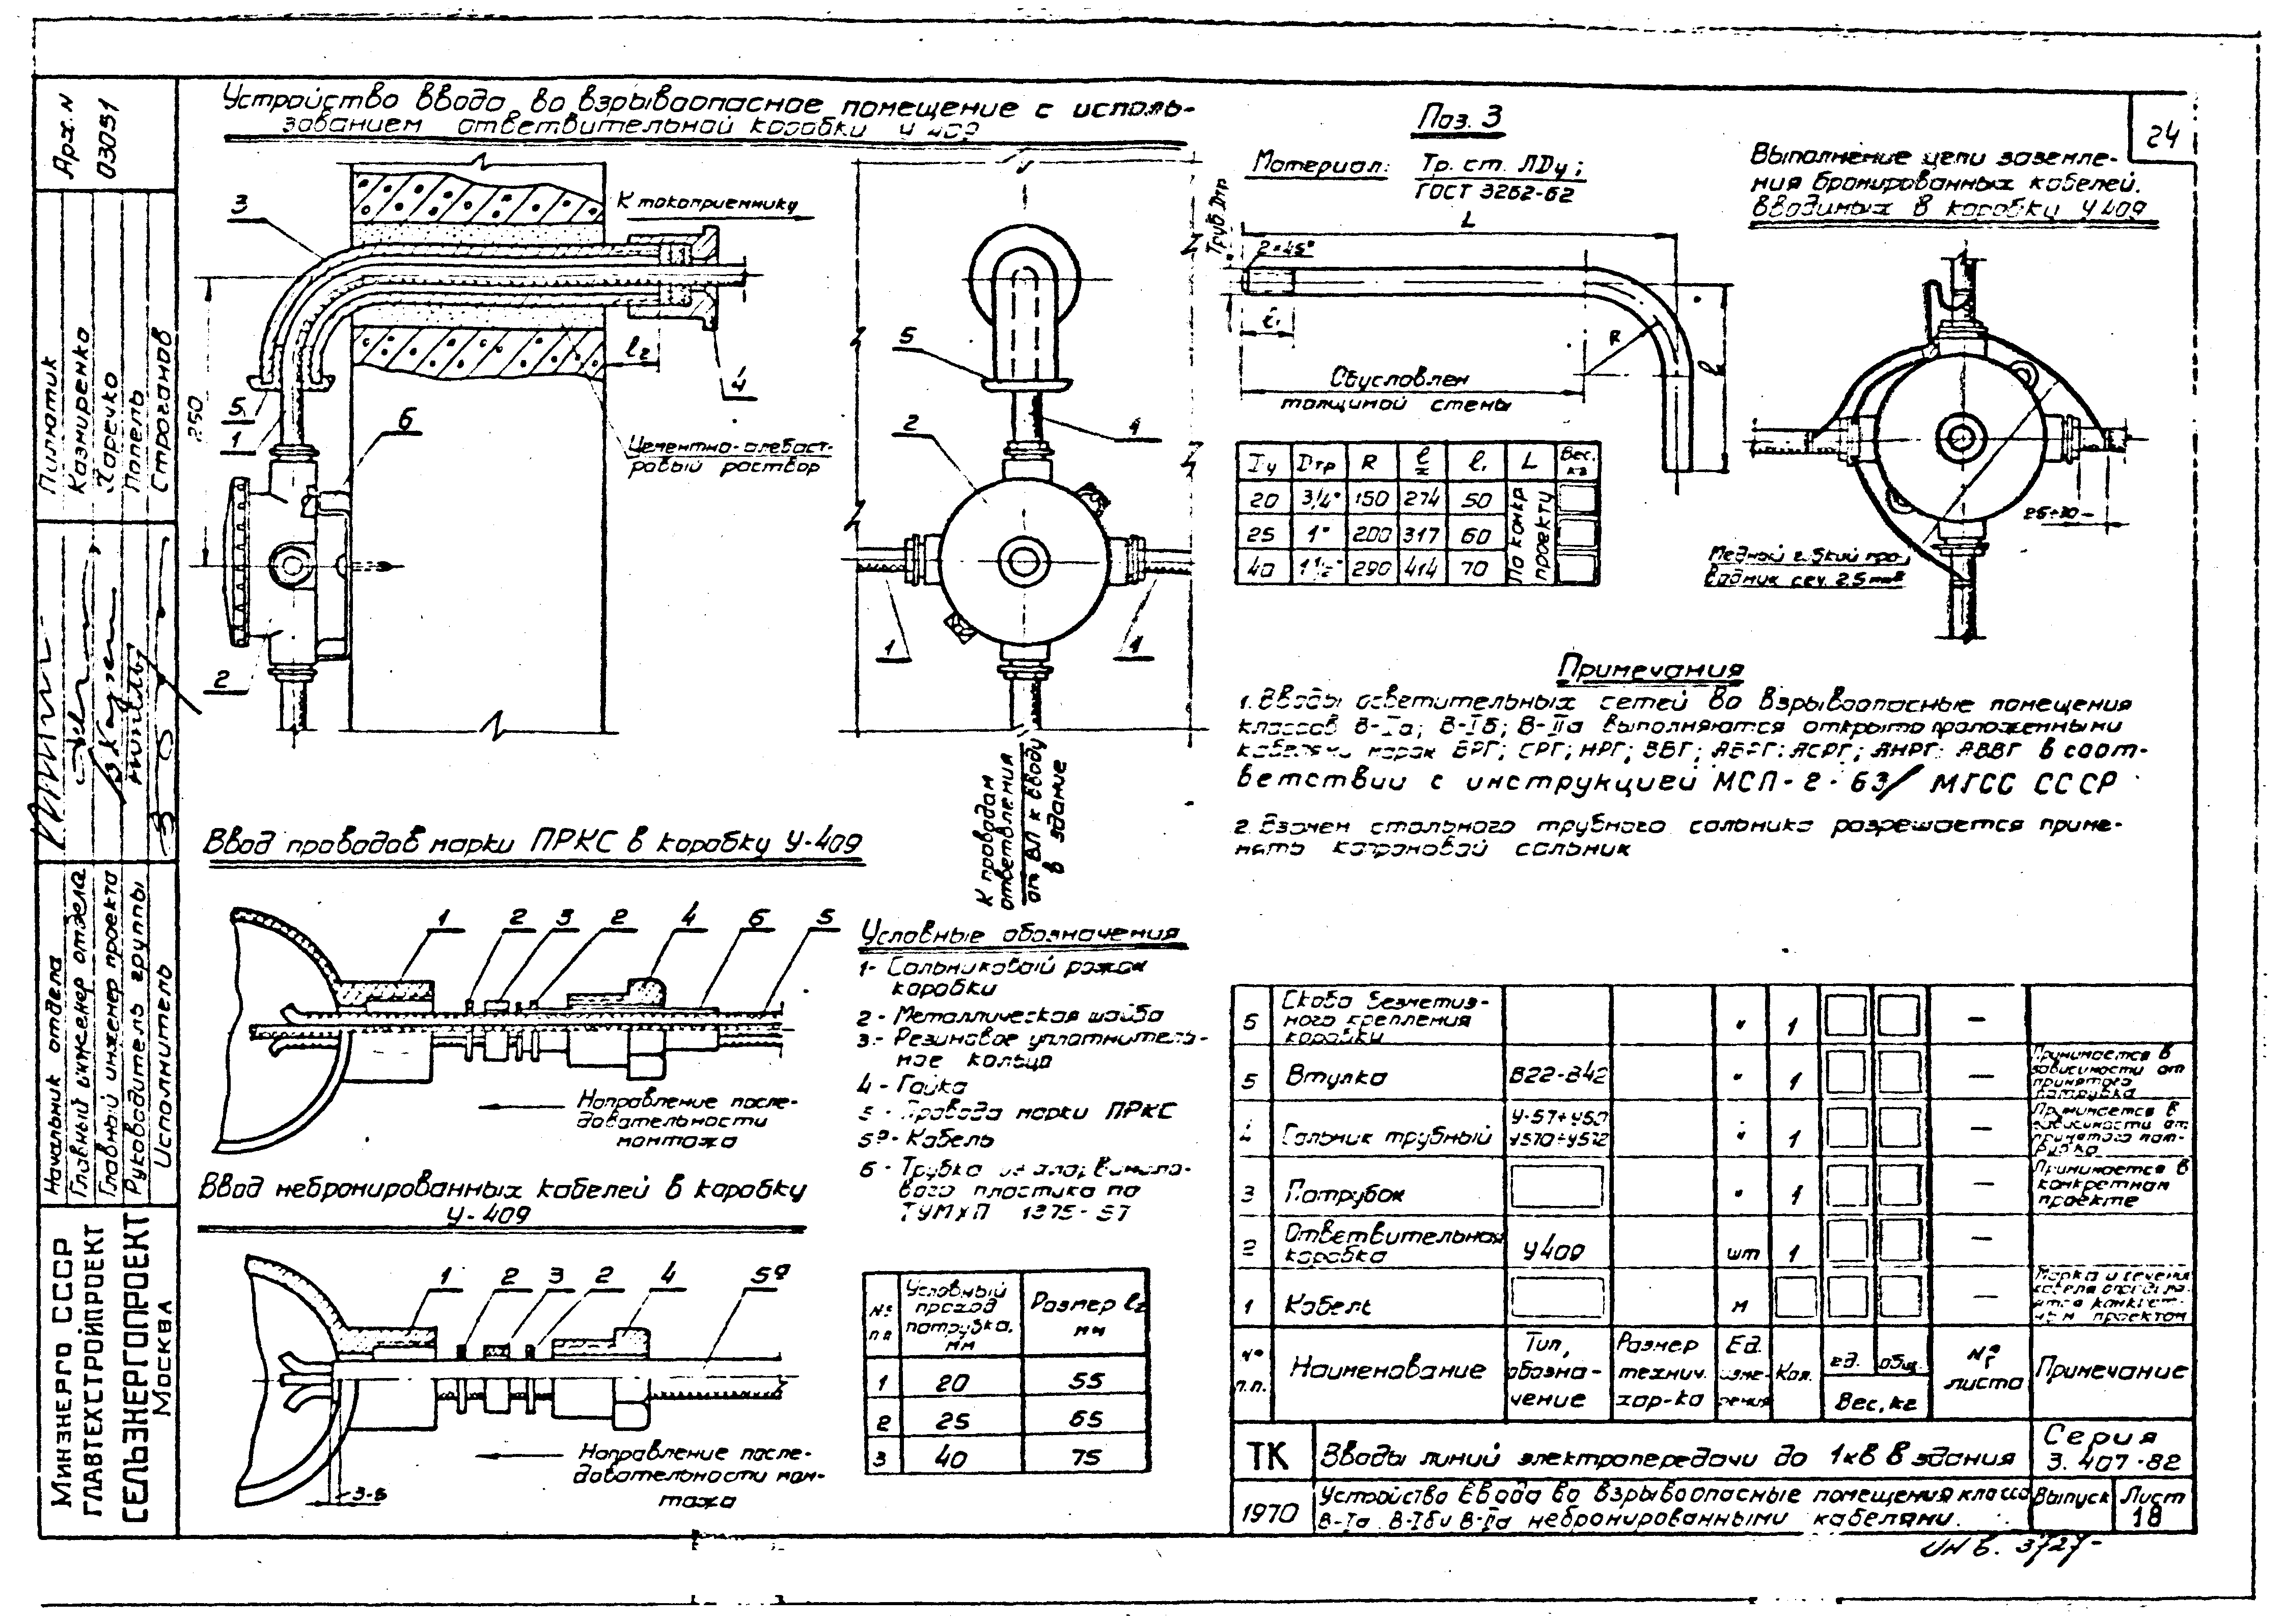 Арх. N
03051
Пилютик
Казмиренко
Харечко
Попель
Строганов
Начальник отдела
Главный инженер отдела
Главный инженер проекта
Руководитель группы
Исполнитель
Минэнерго СССР
ГЛАВТЕХСТРОЙПРОЕКТ
СЕЛЬЭНЕРГОПРОЕКТ
Москва
24
Устройство ввода во взрывоопасное помещение с исполь-
зованием ответвительной коробки У 409
3
К токоприемнику
250
l₂
4
5
1
6
Цементно-алебаст-
ровый раствор
2
5
2
1
1
1
К проводам
ответвления
от ВЛ к вводу
в здание
Поз. 3
Материал: Тр. ст. ЛДу;
ГОСТ 3262-62
L
Труб. Dтр
2×45°
l₁
R
l
Обусловлен
толщиной стены
Ду Dтр R l l₁ L Вес. кг
20 3/4" 150 274 50
25 1" 200 317 60
40 1½" 290 414 70
По конкр
проекту
Выполнение цепи заземле-
ния бронированных кабелей,
вводимых в коробку У409
25÷30
Медной гибкий про-
водник сеч. 2.5мм²
Примечания
1. Вводы осветительных сетей во взрывоопасные помещения
классов В-Iа; В-Iб; В-IIа выполняются открыто проложенными
кабелями марок ВРГ; СРГ; НРГ; ВВГ; АВРГ; АСРГ; АНРГ; АВВГ в соот-
ветствии с инструкцией МСП-2-63/МГСС СССР
2. Взамен стального трубного сальника разрешается приме-
нять капроновой сальник
Ввод проводов марки ПРКС в коробку У-409
1 2 3 2 4 6 5
Направление после-
довательности
монтажа
Ввод небронированных кабелей в коробку
У-409
1 2 3 2 4 5а
Направление после-
довательности мон-
тажа
3-5
Условные обозначения
1- Сальниковый рожок
коробки
2 - Металлическая шайба
3.- Резиновое уплотнитель-
ное кольцо
4 - Гайка
5 - Провода марки ПРКС
5а- Кабель
6 - Трубка из
вого пластика по
ТУМХП 1375-57
№ п.п Условный проход патрубка, мм Размер l₂ мм
1 20 55
2 25 65
3 40 75
6 Скоба безметиз-
ного крепления
коробки " 1 —
5 Втулка В22-В42 " 1 — Принимается в
зависимости от
принятого
патрубка
4 Сальник трубный У-57÷У60
У570÷У572 " 1 — Принимается в
зависимости от
принятого пат-
рубка
3 Патрубок " 1 — Принимается в
конкретном
проекте
2 Ответвительная
коробка У409 шт 1 —
1 Кабель м — Марка и сечение
кабеля определя-
ются конкрет-
ным проектом
№ п.п. Наименование Тип, обозна-чение Размер технич. хар-ка Ед. изме-рения Кол. ед. общ. Вес, кг № листа Примечание
ТК Вводы линий электропередачи до 1кВ в здания Серия
3.407-82
1970 Устройство ввода во взрывоопасные помещения класса
В-Iа В-Iб и В-IIа небронированными кабелями. Выпуск Лист
18
инв. 3727-